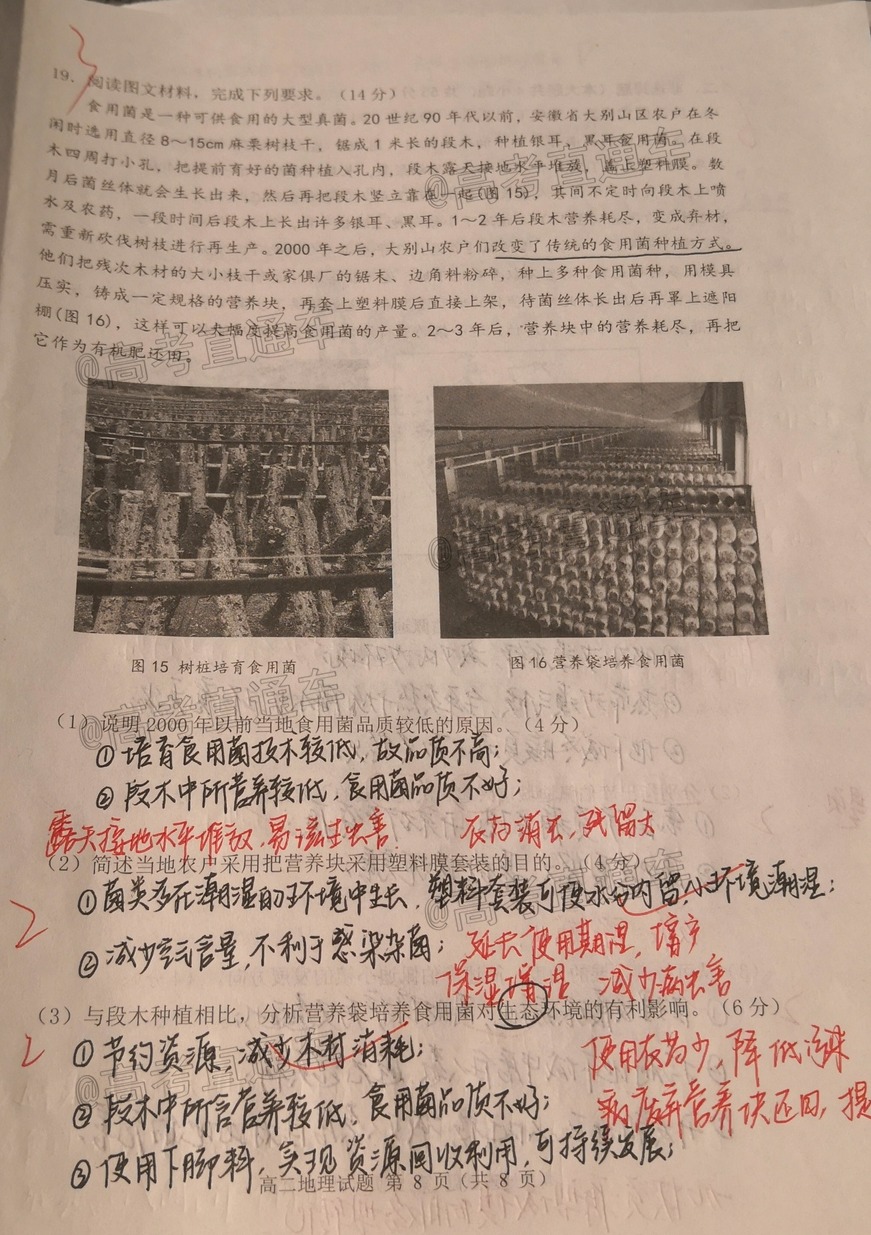 19. 阅读图文材料，完成下列要求。（14分）
食用菌是一种可供食用的大型真菌。20世纪90年代以前，安徽省大别山区农户在冬
闲时选用直径8～15cm麻栗树枝干，锯成1米长的段木，种植银耳、黑耳食用菌。在段
木四周打小孔，把提前育好的菌种植入孔内，段木露天接地水平堆放，盖上塑料膜。数
月后菌丝体就会生长出来，然后再把段木竖立靠在一起(图15)，其间不定时向段木上喷
水及农药，一段时间后段木上长出许多银耳、黑耳。1～2年后段木营养耗尽，变成弃材，
需重新砍伐树枝进行再生产。2000年之后，大别山农户们改变了传统的食用菌种植方式。
他们把残次木材的大小枝干或家俱厂的锯末、边角料粉碎，种上多种食用菌种，用模具
压实，铸成一定规格的营养块，再套上塑料膜后直接上架，待菌丝体长出后再罩上遮阳
棚(图16)，这样可以大幅度提高食用菌的产量。2～3年后，营养块中的营养耗尽，再把
它作为有机肥还田。
@高考直通车
@高考直通车
@高考直通车
图15 树桩培育食用菌
图16 营养袋培养食用菌
@高考直通车
（1）说明2000年以前当地食用菌品质较低的原因。（4分）
①培育食用菌技术较低，故品质不高；
②段木中所营养较低，食用菌品质不好；
露天接地水平堆放，易滋生虫害. 农药消去，残留大
（2）简述当地农户采用把营养块采用塑料膜套装的目的。（4分）
①菌类多在潮湿的环境中生长，塑料套装可使水分内留，小环境潮湿；
2
②减少空气含量，不利于感染杂菌； 延长使用期 增产
保湿 减少病虫害
@高考直通车
（3）与段木种植相比，分析营养袋培养食用菌对生态环境的有利影响。（6分）
2
①节约资源，减少木材消耗； 使用农药少，降低污染
@高考直通车
②段木中所含营养较低，食用菌品质不好； 废弃营养块还田，提
③使用下脚料，实现资源回收利用，可持续发展；
高二地理试题 第 8 页（共 8 页）